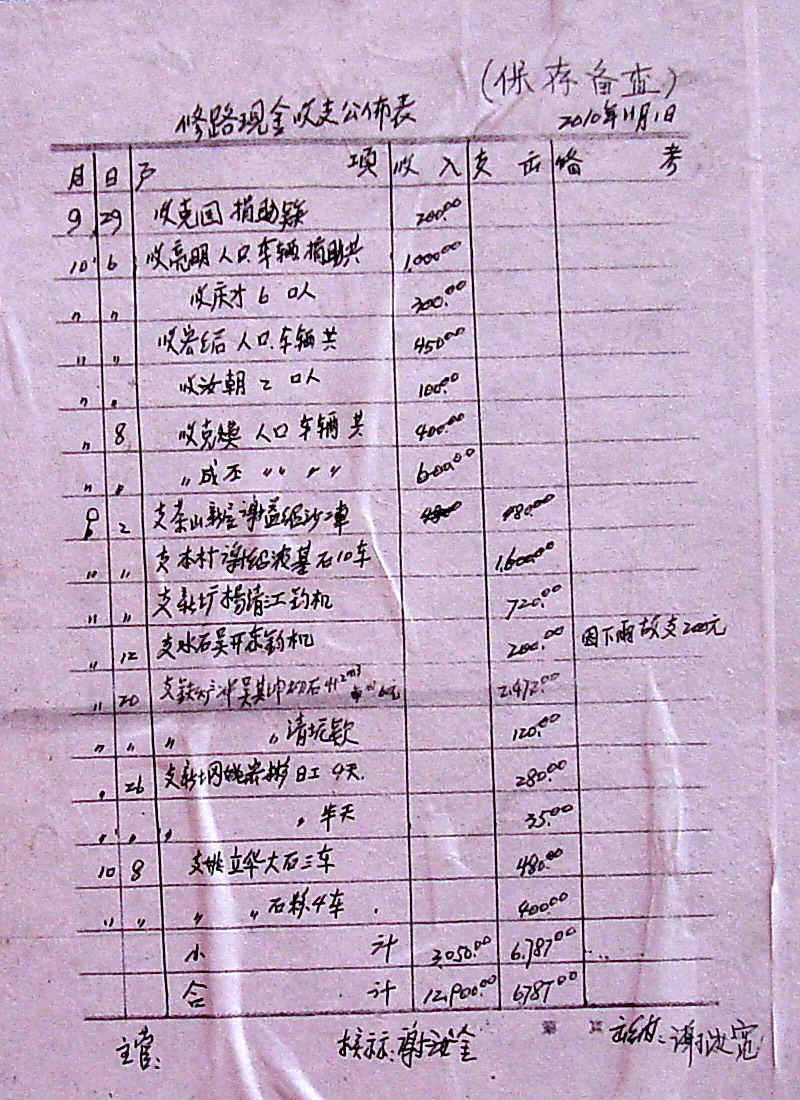 (保存备查)
修路现金收支公佈表 2010年11月1日
月 日 户 项 收入 支出 备考
9 29 收克国 捐助款 200.00
10 6 收亮明 人口.车辆.捐助共 1,000.00
〃 〃 收庆才 6 口人 300.00
〃 〃 收 人口.车辆 共 450.00
〃 〃 收汝朝 2 口人 100.00
〃 8 收克焕 人口 车辆 共 400.00
〃 〃 〃成丕 〃 〃 〃 〃 600.00
2 支茶山 沙二車 480.00
〃 〃 支本村 基石10车 1,600.00
〃 〃 支 杨清江钓机 720.00
〃 12 支水石吴开东钓机 200.00 因下雨故支200元
〃 20 支铁炉冲吴其坤 石412m3 2,472.00
〃 〃 〃 〃清坭款 120.00
〃 26 支 日工 4天. 280.00
〃 〃 〃 〃 半天 35.00
10 8 支姚立华大石三车 480.00
〃 〃 〃 〃石 4车 400.00
小计 3,050.00 6,787.00
合计 12,900.00 6787.00
第 页
主管: 核示:谢汝金 谢汝宽